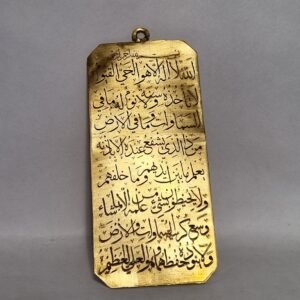 بسم الله الرحمن الرحيم
الله لا اله الا هو الحي القيوم
لا تاخذه سنة ولا نوم له ما في
السماوات وما في الارض
من ذا الذي يشفع عنده الا باذنه
يعلم ما بين ايديهم وما خلفهم
ولا يحيطون بشيء من علمه الا بما شاء
وسع كرسيه السماوات والارض
ولا يؤده حفظهما وهو العلي العظيم